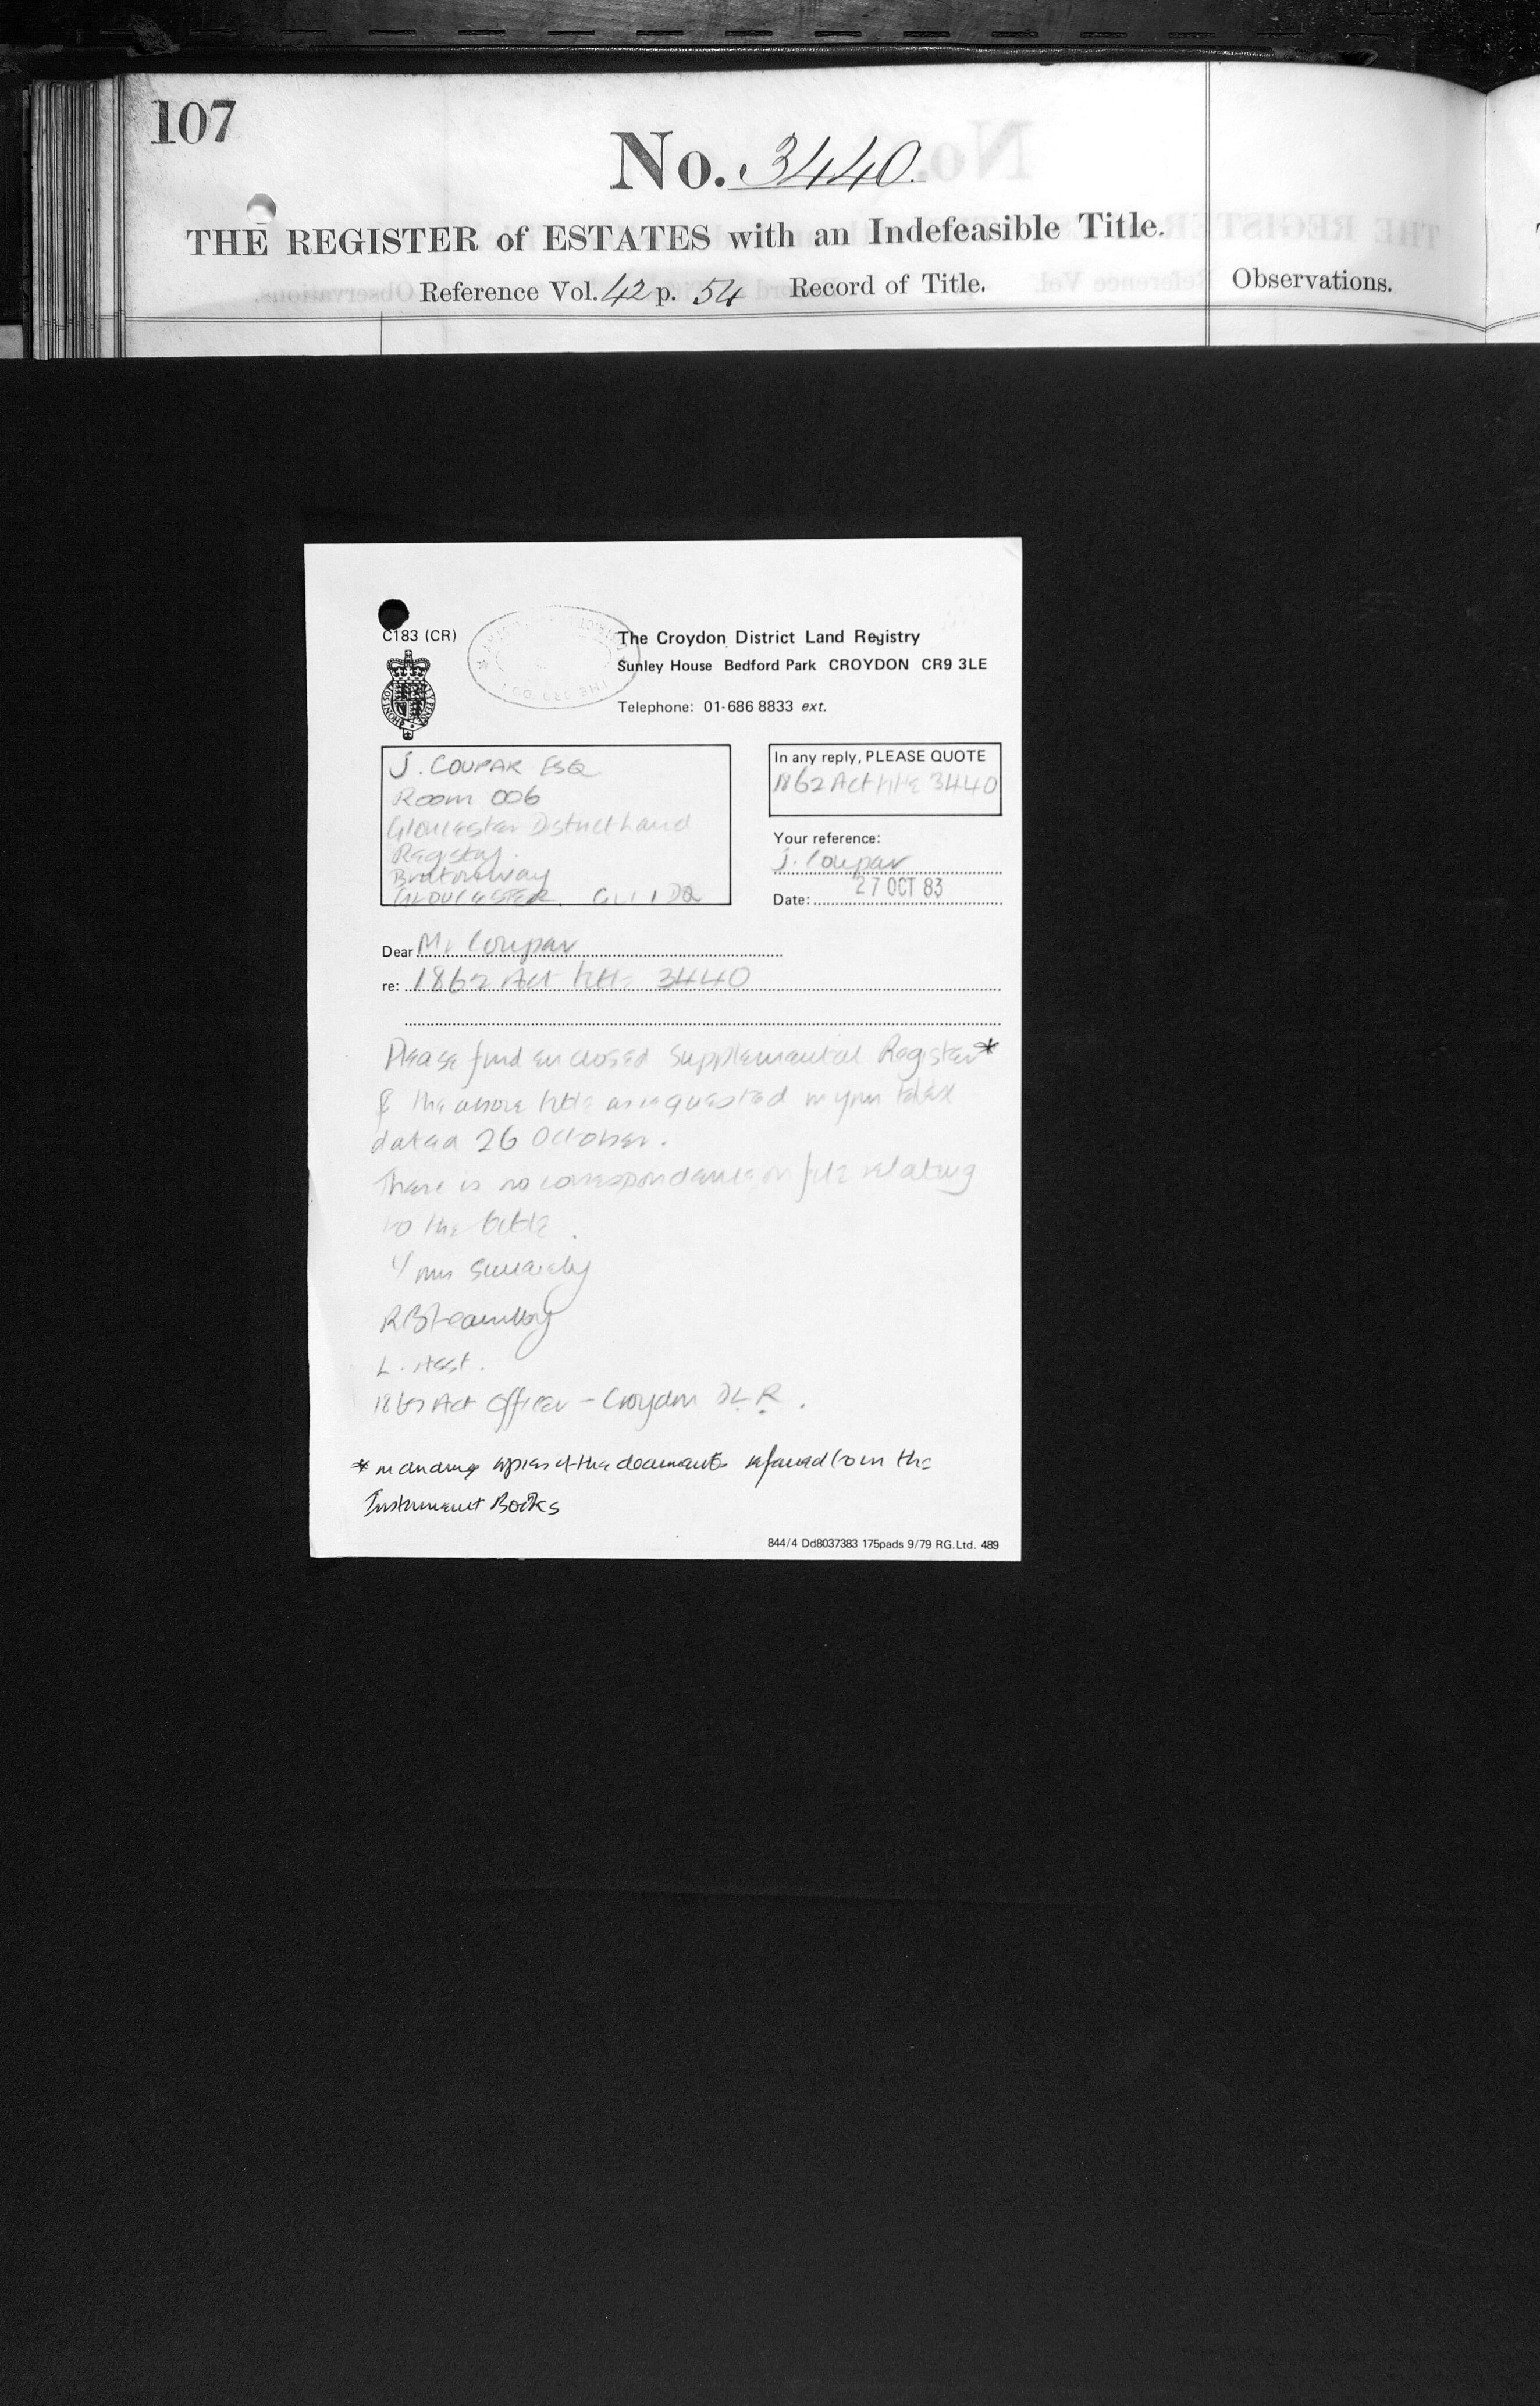 107
No. 3440.
THE REGISTER of ESTATES with an Indefeasible Title.
Reference Vol. 42 p. 54 Record of Title.
Observations.
C183 (CR)
The Croydon District Land Registry
Sunley House Bedford Park CROYDON CR9 3LE
Telephone: 01-686 8833 ext.
J. COUPAR ESQ
Room 006
Gloucester District Land
Registry.
Bruton Way
GLOUCESTER GL1 1DQ
In any reply, PLEASE QUOTE
1862 Act title 3440
Your reference:
J. Coupar
Date: 27 OCT 83
Dear Mr Coupar
re: 1862 Act title 3440
Please find enclosed Supplemental Register*
of the above title as requested in your telex
dated 26 October.
There is no correspondence on file relating
to the title.
Yours sincerely
L. Asst.
1862 Act Officer - Croydon DLR.
* including copies of the documents referred to in the
Instrument Books
844/4 Dd8037383 175pads 9/79 RG.Ltd. 489